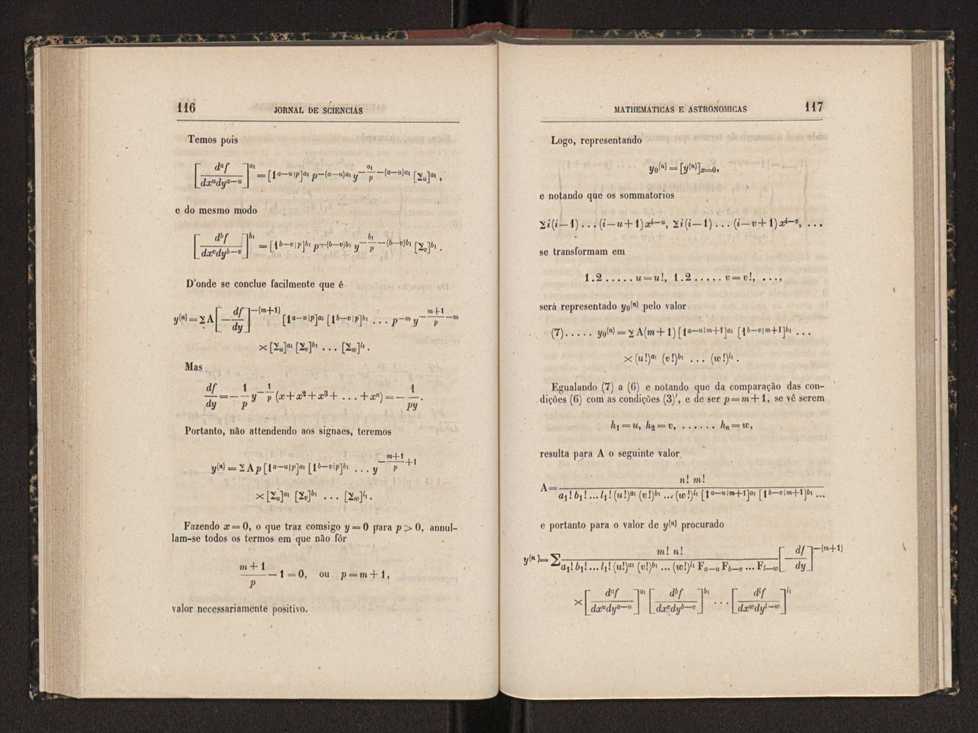 116 JORNAL DE SCIENCIAS
Temos pois
[d^a f / dx^u dy^{a−u}]^{a_1} = [1^{a−u|p}]^{a_1} p^{−(a−u)a_1} y^{−a_1/p −(a−u)a_1} [Σ_u]^{a_1} ,
e do mesmo modo
[d^b f / dx^v dy^{b−v}]^{b_1} = [1^{b−v|p}]^{b_1} p^{−(b−v)b_1} y^{−b_1/p −(b−v)b_1} [Σ_v]^{b_1} .
D'onde se conclue facilmente que é
y^{(n)} = ΣA [− df/dy]^{−(m+1)} [1^{a−u|p}]^{a_1} [1^{b−v|p}]^{b_1} ... p^{−m} y^{−(m+1)/p −m}
× [Σ_u]^{a_1} [Σ_v]^{b_1} ... [Σ_w]^{l_1} .
Mas
df/dy = − 1/p y^{−1/p} (x+x²+x³+ ... +x^n) = − 1/py .
Portanto, não attendendo aos signaes, teremos
y^{(n)} = ΣAp [1^{a−u|p}]^{a_1} [1^{b−v|p}]^{b_1} ... y^{−(m+1)/p +1}
× [Σ_u]^{a_1} [Σ_v]^{b_1} ... [Σ_w]^{l_1} .
Fazendo x = 0, o que traz comsigo y = 0 para p > 0, annul-
lam-se todos os termos em que não fôr
(m + 1)/p − 1 = 0, ou p = m + 1,
valor necessariamente positivo.
MATHEMATICAS E ASTRONOMICAS 117
Logo, representando
y_0^{(n)} = [y^{(n)}]_{x=0},
e notando que os sommatorios
Σi(i−1)...(i−u+1)x^{i−u}, Σi(i−1)...(i−v+1)x^{i−v}, ...
se transformam em
1.2.....u = u!, 1.2.....v = v!, ....,
será representado y_0^{(n)} pelo valor
(7)..... y_0^{(n)} = ΣA(m+1) [1^{a−u|m+1}]^{a_1} [1^{b−v|m+1}]^{b_1} ...
× (u!)^{a_1} (v!)^{b_1} ... (w!)^{l_1} .
Egualando (7) a (6) e notando que da comparação das con-
dições (6) com as condições (3)', e de ser p = m + 1, se vê serem
h_1 = u, h_2 = v, ...... h_n = w,
resulta para A o seguinte valor
A = n! m! / a_1! b_1! ... l_1! (u!)^{a_1} (v!)^{b_1} ... (w!)^{l_1} [1^{a−u|m+1}]^{a_1} [1^{b−v|m+1}]^{b_1} ...
e portanto para o valor de y^{(n)} procurado
y^{(n)} = Σ m! n! / a_1! b_1! ... l_1! (u!)^{a_1} (v!)^{b_1} ... (w!)^{l_1} F_{a−u} F_{b−v} ... F_{l−w} [− df/dy]^{−(m+1)}
× [d^a f / dx^u dy^{a−u}]^{a_1} [d^b f / dx^v dy^{b−v}]^{b_1} ... [d^l f / dx^w dy^{l−w}]^{l_1}